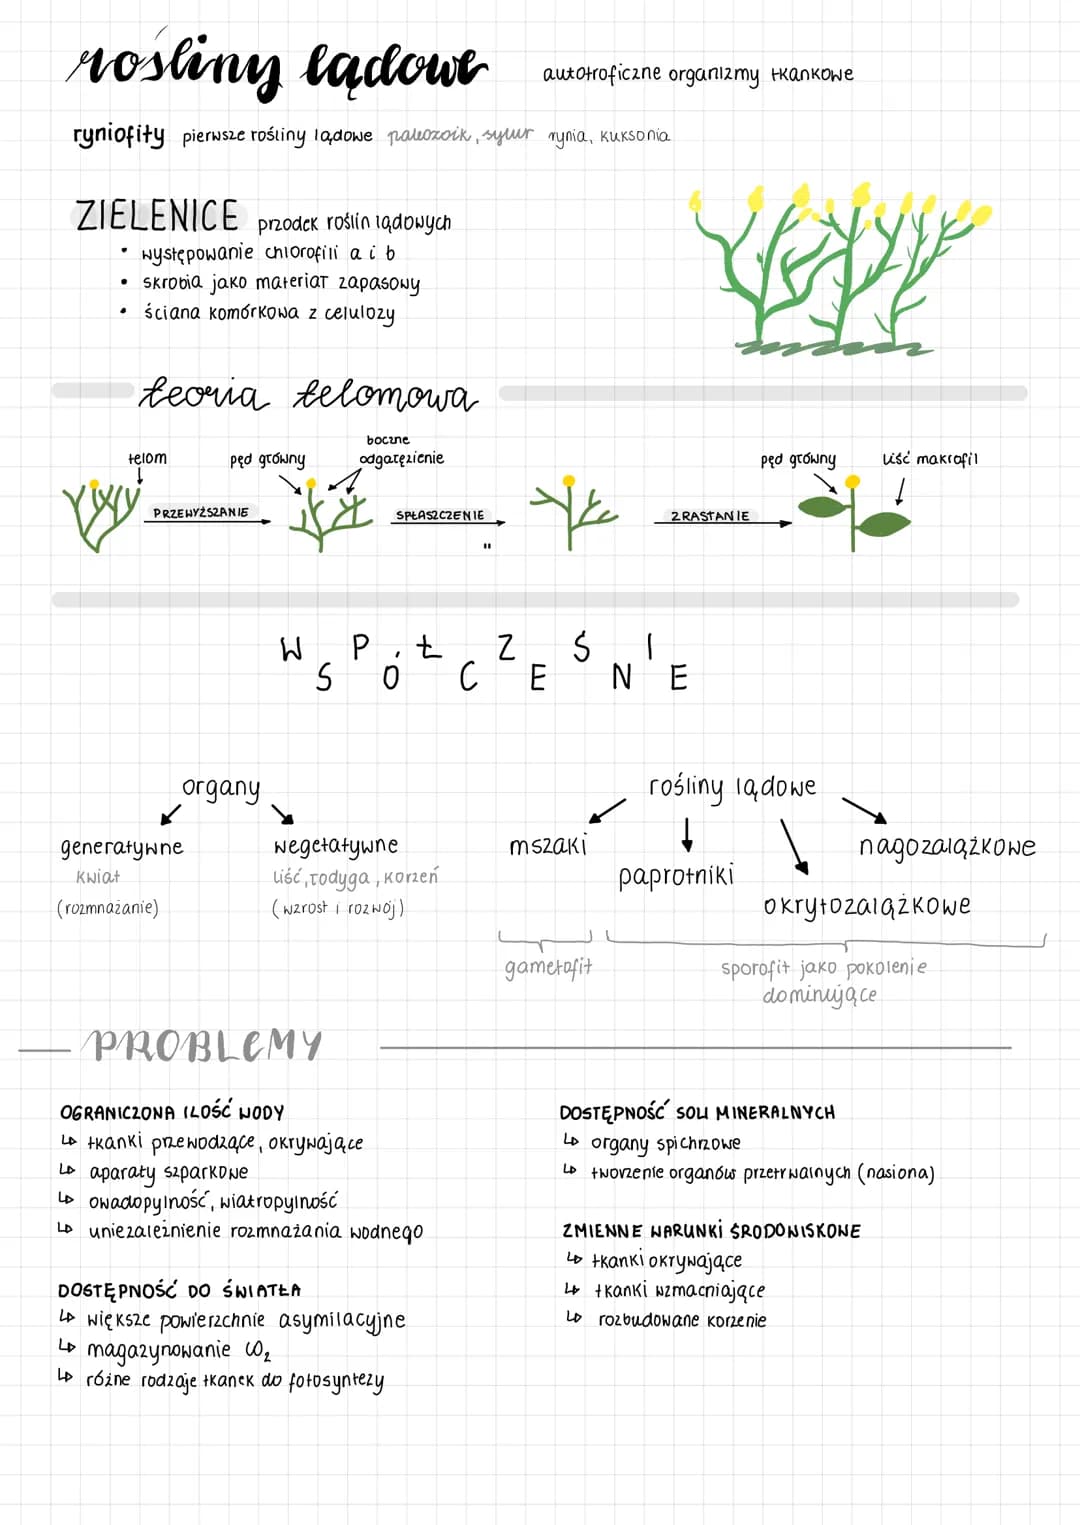 rośliny lądowe autotroficzne organizmy tkankowe
ryniofity pierwsze rośliny lądowe paleozoik, sylur rynia, kuksonia
ZIELENICE przodek roślin lądowych
• występowanie chlorofili a i b
• skrobia jako materiał zapasowy
• ściana komórkowa z celulozy
teoria telomowa
telom
pęd główny
boczne
odgałęzienie
pęd główny
liść makrofil
PRZEWYŻSZANIE
SPŁASZCZENIE
"
ZRASTANIE
WSPÓŁCZEŚNIE
organy
generatywne
kwiat
(rozmnażanie)
wegetatywne
liść, łodyga, korzeń
(wzrost i rozwój)
rośliny lądowe
mszaki
paprotniki
okrytozalążkowe
nagozalążkowe
gametofit
sporofit jako pokolenie
dominujące
PROBLEMY
OGRANICZONA ILOŚĆ WODY
↳ tkanki przewodzące, okrywające
↳ aparaty szparkowe
↳ owadopylność, wiatropylność
↳ uniezależnienie rozmnażania wodnego
DOSTĘPNOŚĆ DO ŚWIATŁA
↳ większe powierzchnie asymilacyjne
↳ magazynowanie CO₂
↳ różne rodzaje tkanek do fotosyntezy
DOSTĘPNOŚĆ SOLI MINERALNYCH
↳ organy spichrzowe
↳ tworzenie organów przetrwalnych (nasiona)
ZMIENNE WARUNKI ŚRODOWISKOWE
↳ tkanki okrywające
↳ tkanki wzmacniające
↳ rozbudowane korzenie